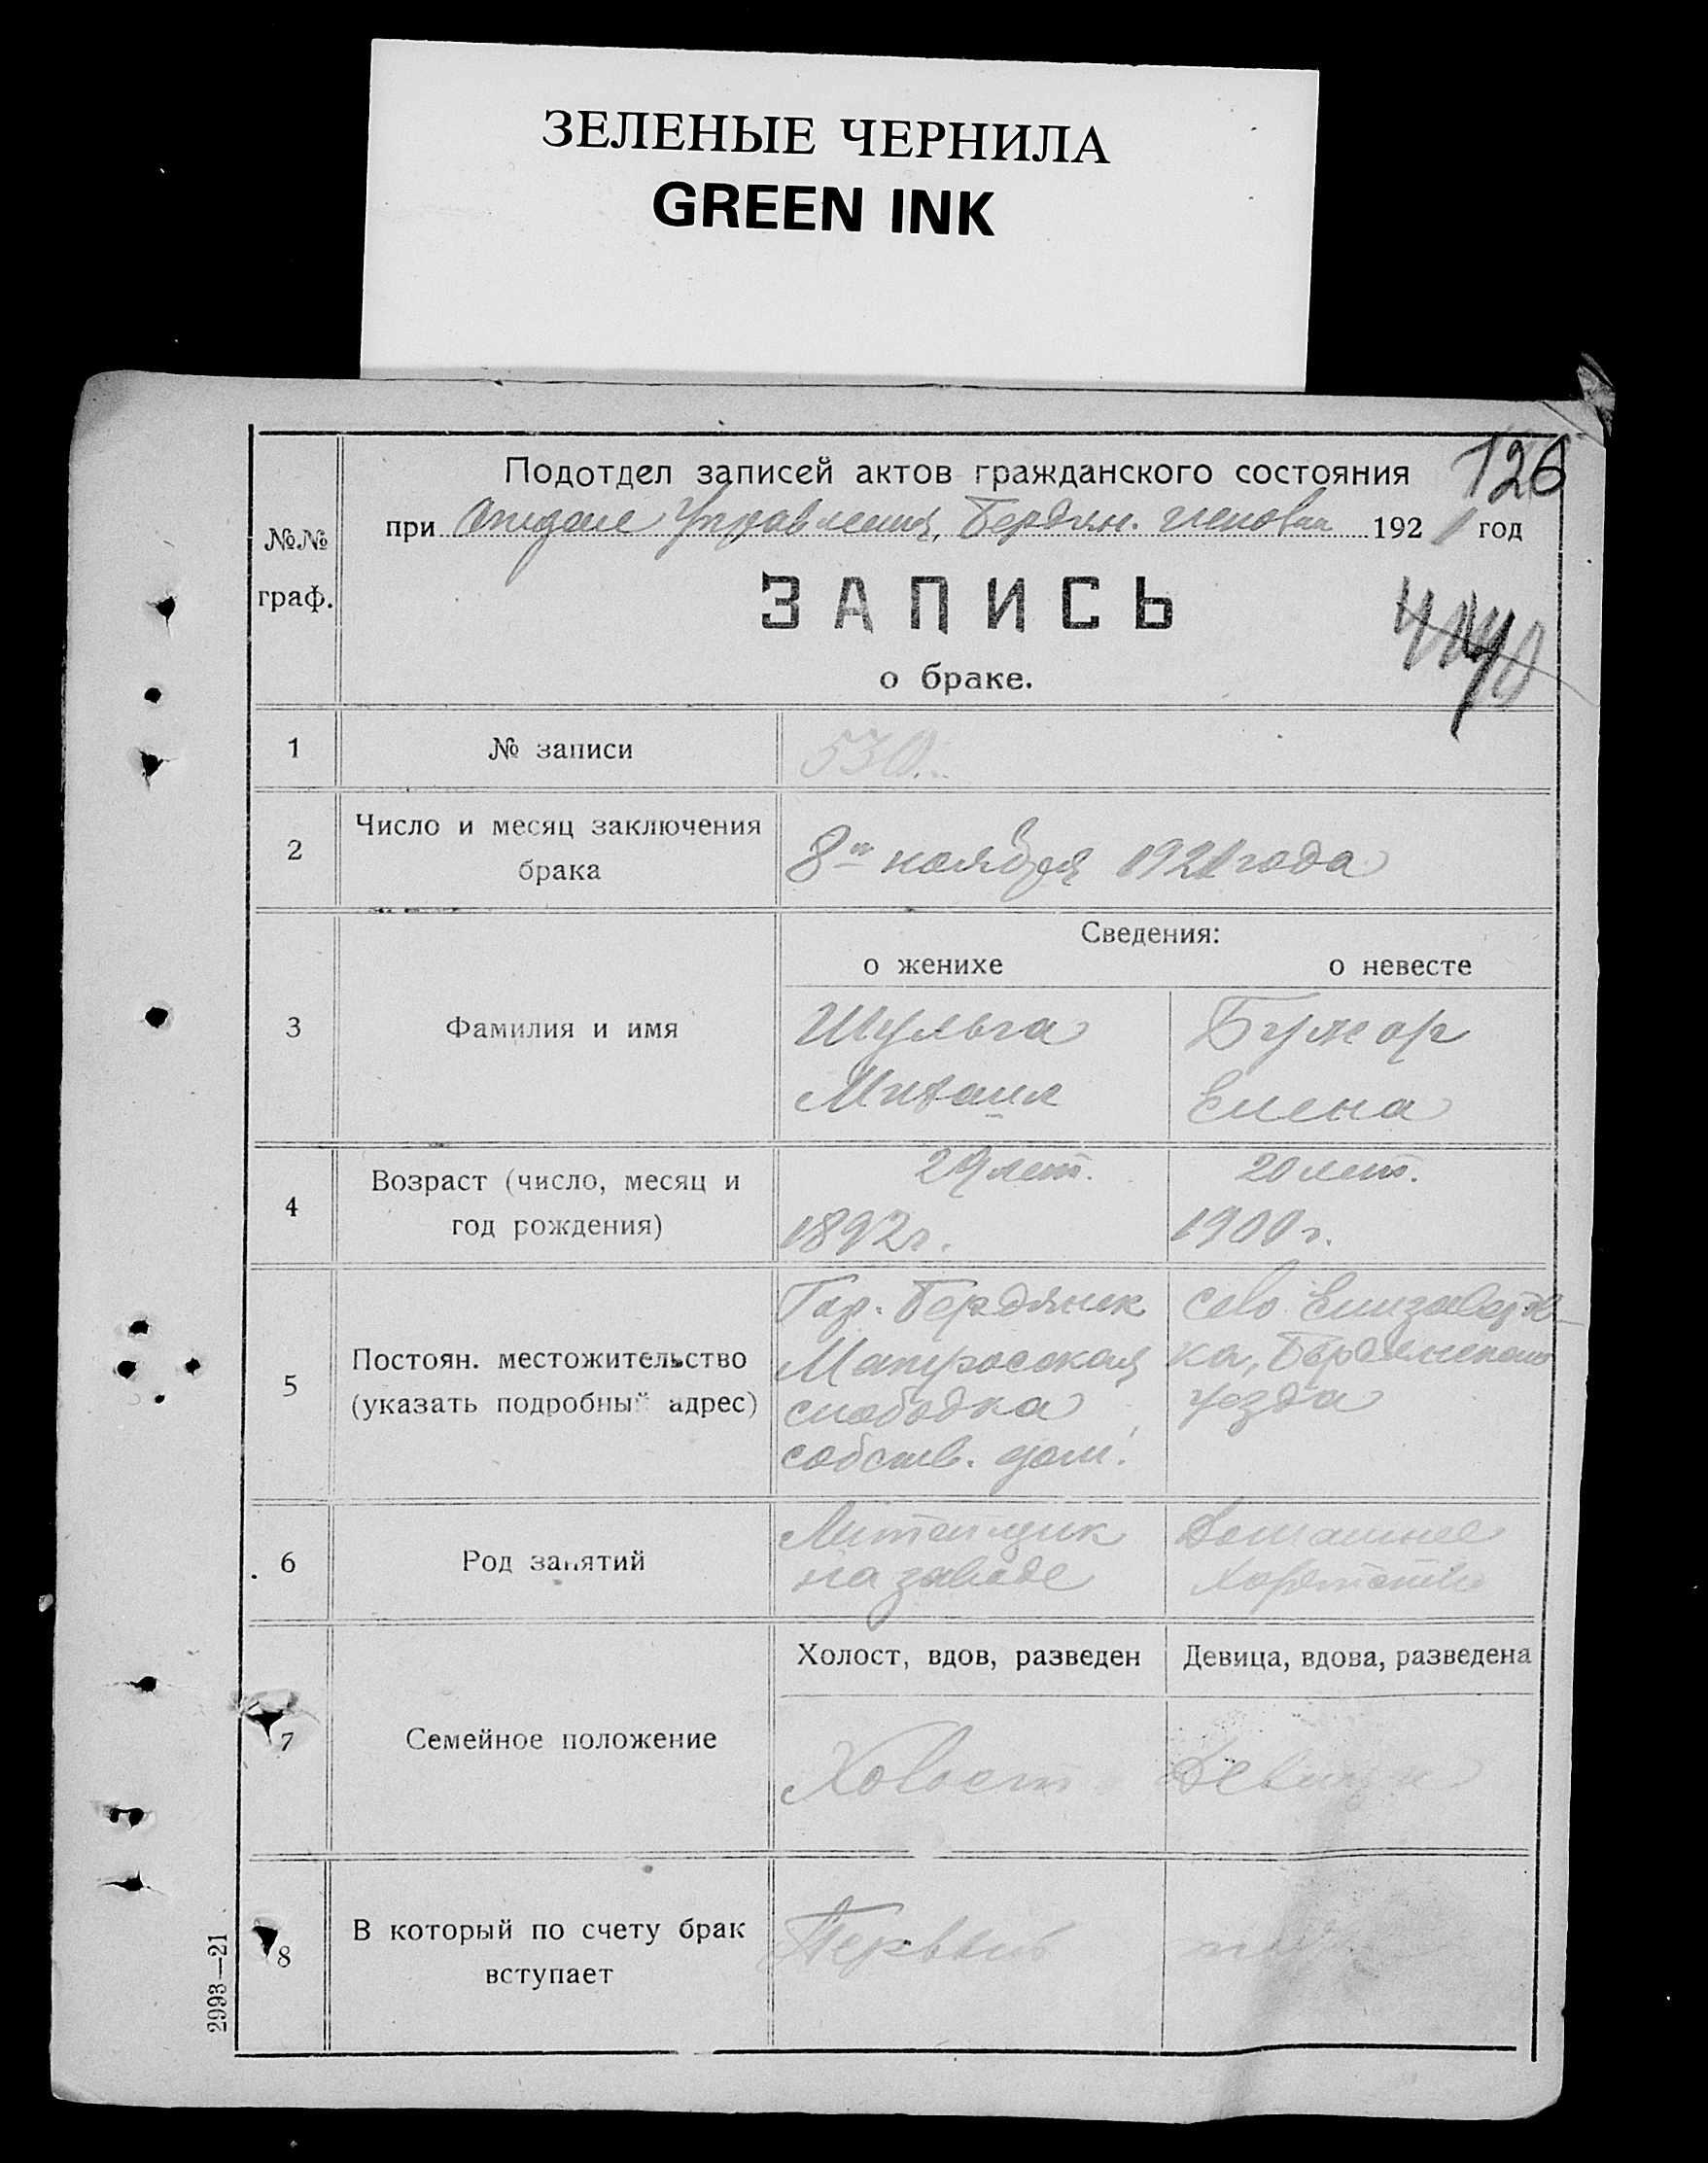 ЗЕЛЕНЫЕ ЧЕРНИЛА
GREEN INK
126
Подотдел записей актов гражданского состояния
при Отделе Управления, Бердян. 1921 год
№№
граф.
ЗАПИСЬ
о браке.
1 № записи 530.
2 Число и месяц заключения
брака
8го ноября 1921 года
Сведения:
о женихе о невесте
3 Фамилия и имя
Шульга Бужор
Михаил Елена
4 Возраст (число, месяц и
год рождения)
29 лет. 20 лет.
1892 г. 1900 г.
5 Постоян. местожительство
(указать подробный адрес)
Гор. Бердянск село Елизаветов-
Матросская ка, Бердянского
слободка уезда
собств. дом.
6 Род занятий
Литейщик Домашнее
на заводе
Холост, вдов, разведен Девица, вдова, разведена
7 Семейное положение
Холост Девица
8 В который по счету брак
вступает
Первый
2993—21